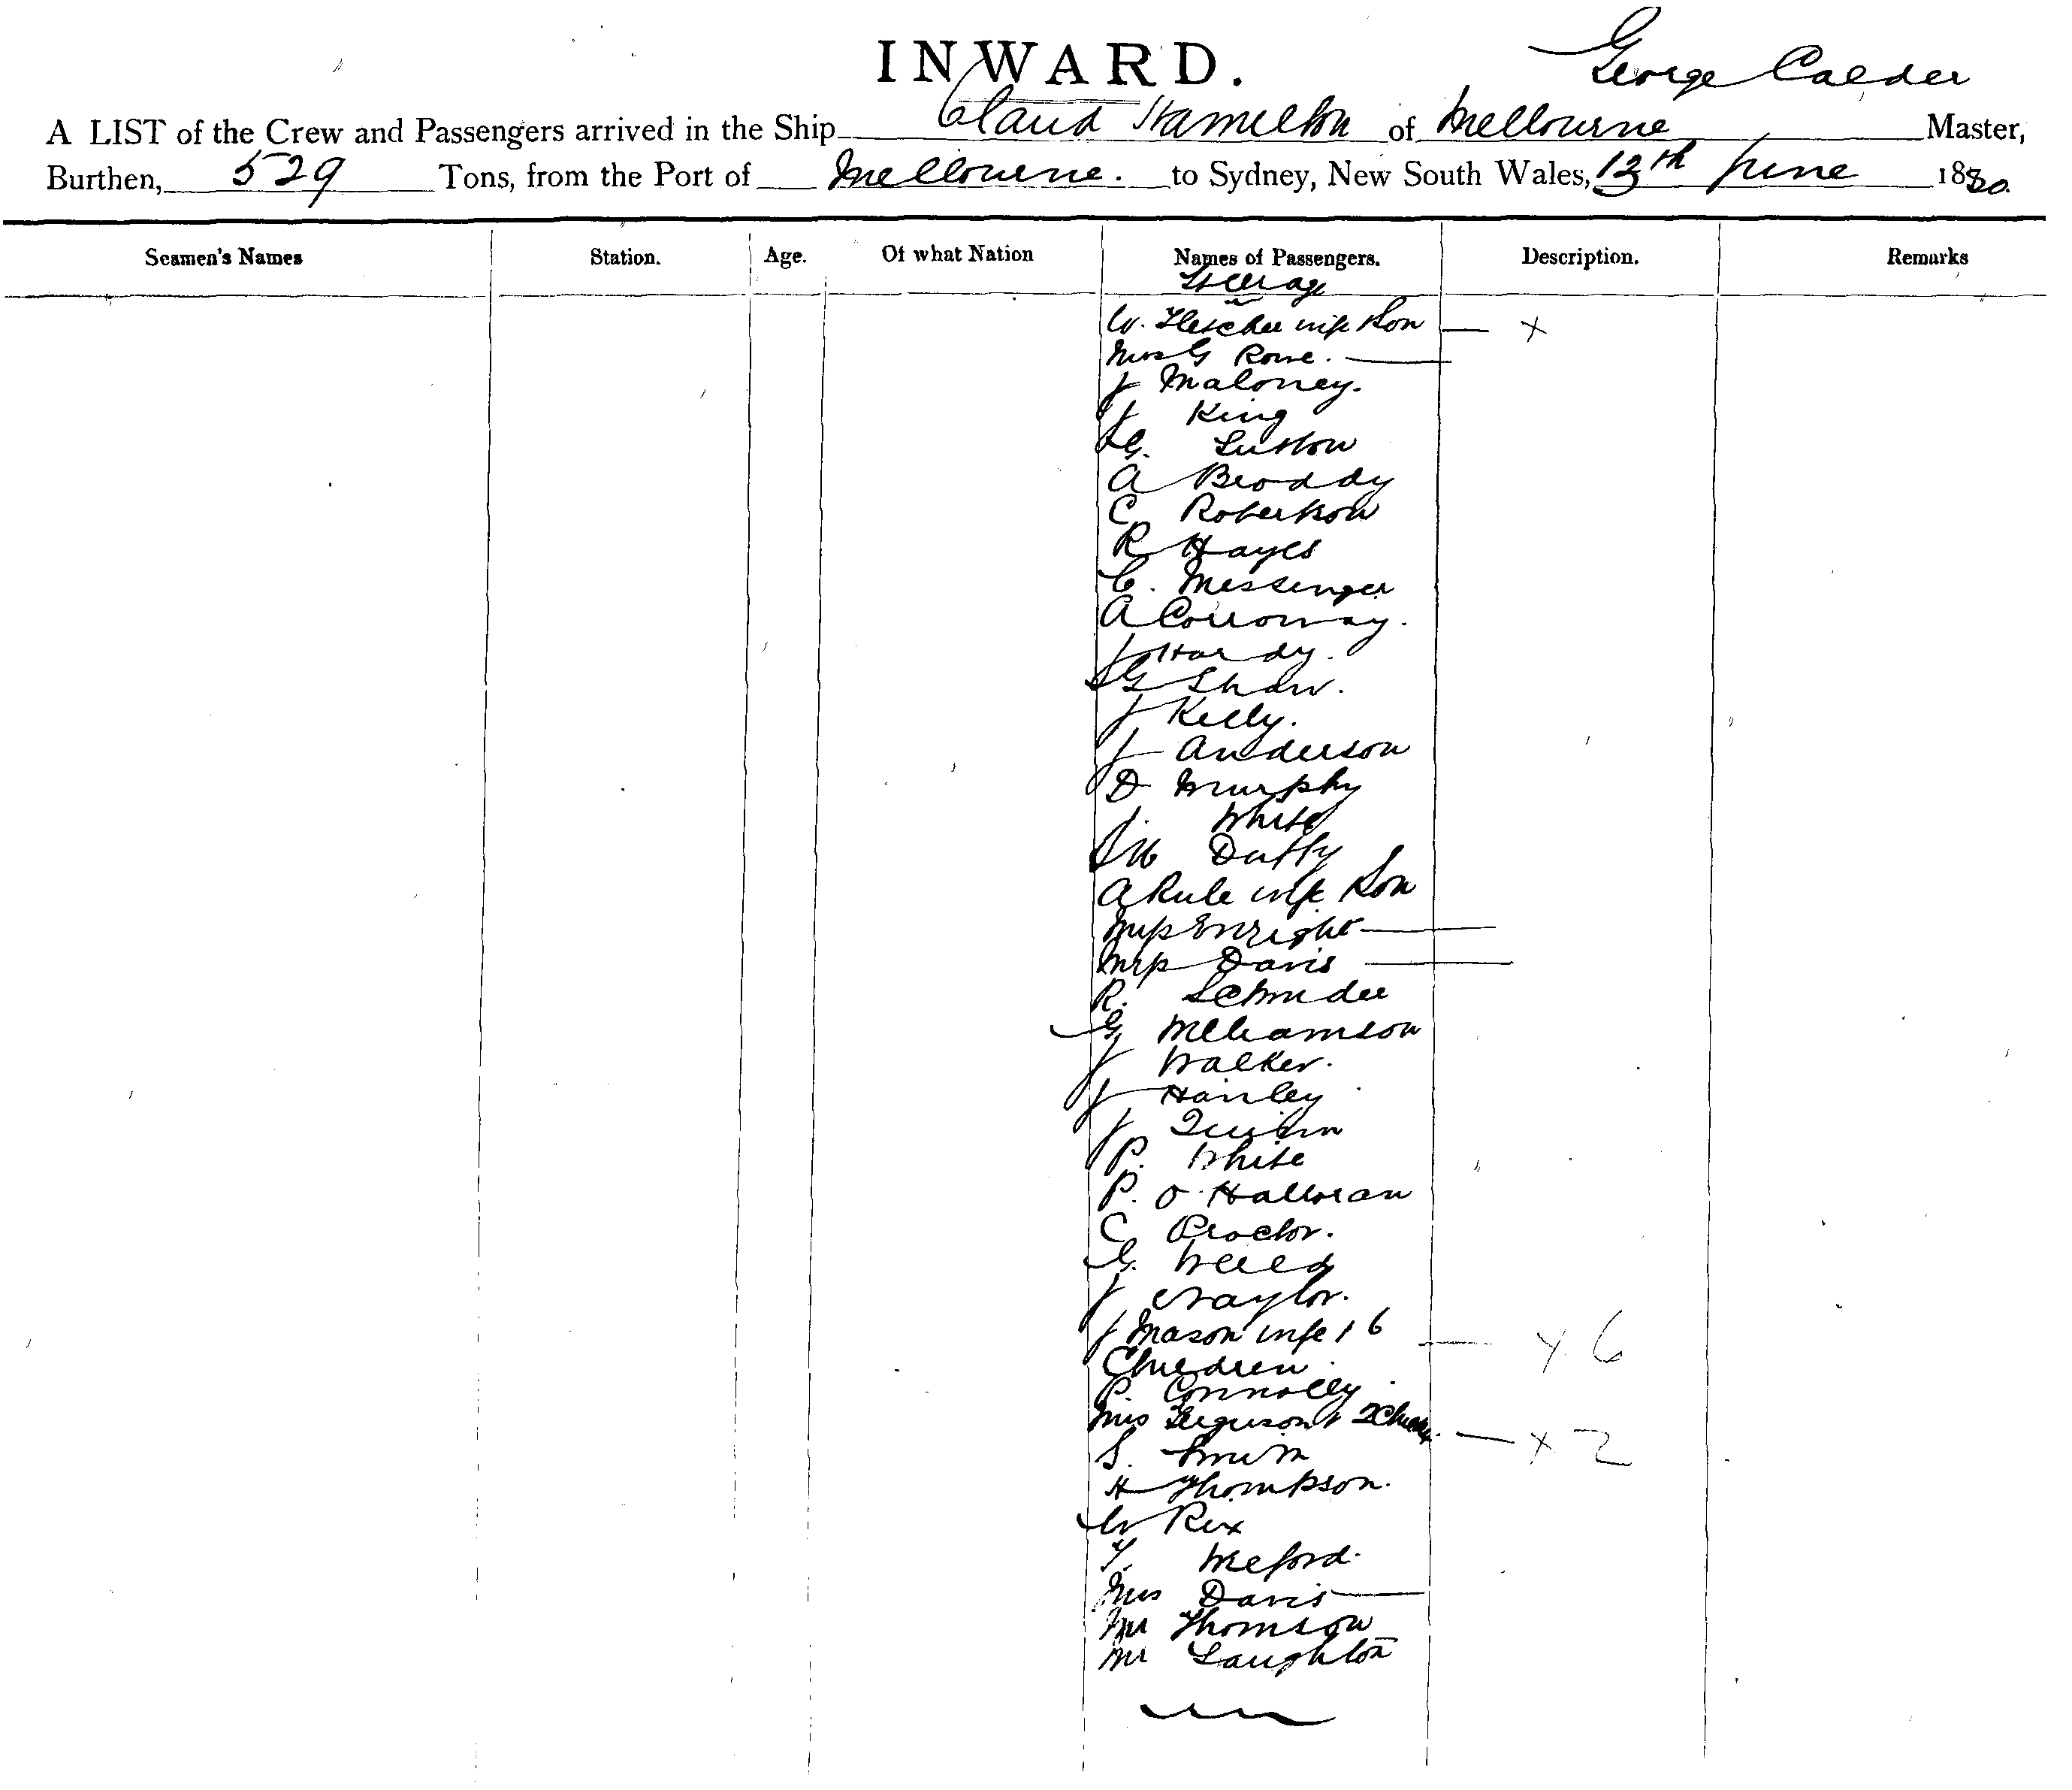 INWARD.
George Calder
A LIST of the Crew and Passengers arrived in the Ship Claud Hamilton of Melbourne Master,
Burthen, 529 Tons, from the Port of Melbourne. to Sydney, New South Wales, 13th June 1880.
Seamen's Names Station. Age. Of what Nation Names of Passengers. Description. Remarks
Steerage
W. Fletcher wife & Son — x
Mrs G Rowe.
J Maloney.
J King
G. Luxton
A Broddy
C Robertson
R Hayes
C. Messenger
A Conroway.
J Hardy.
G Shaw.
J Kelly.
J Anderson
D Murphy
J. White
M Duffy
A Rule wife & Son
Miss Enright
Miss Davis
R. Schnider
G Williamson
J Walker.
J Hanley
J Quinn
P. White
P. O Halloran
C Proctor.
G. Wells
J Taylor.
J Mason wife & 6 — x 6
Children
P. Connolly
Mrs Ferguson & 2 Children — x 2
S. Smith
H Thompson.
W Rix
T. Welford.
Mrs Davis
Mr Thomson
Mr Laughton